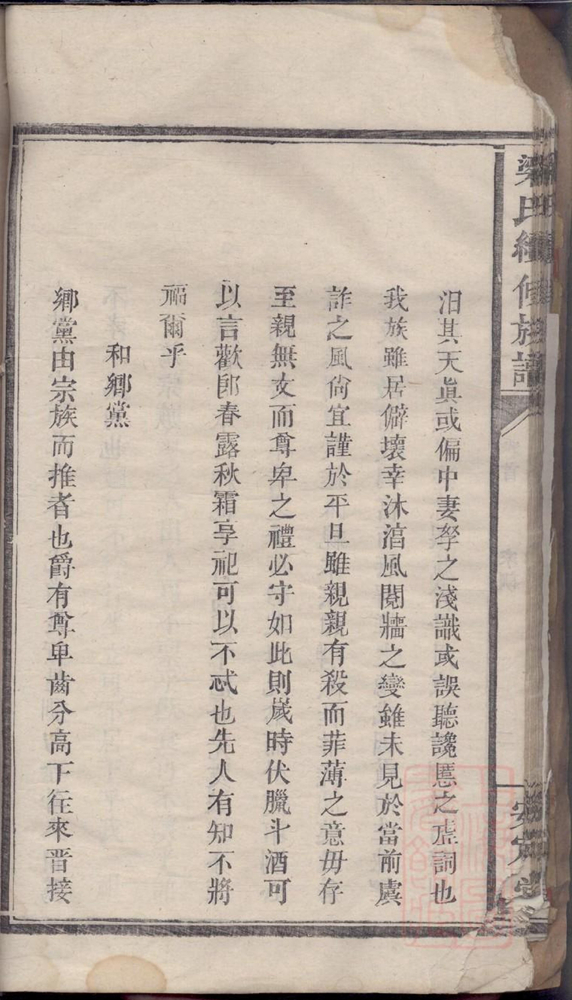 梁氏續修族譜
安定堂
汨其天眞或偏中妻孥之淺識或誤聽讒慝之虛詞也
我族雖居僻壤幸沐湻風閱牆之變雖未見於當前虞
詐之風尙宜謹於平旦雖親親有殺而菲薄之意毋存
至親無文而尊卑之禮必守如此則歲時伏臘斗酒可
以言歡卽春露秋霜享祀可以不忒也先人有知不將
福爾乎
和鄉黨
鄉黨由宗族而推者也爵有尊卑齒分高下往來晋接